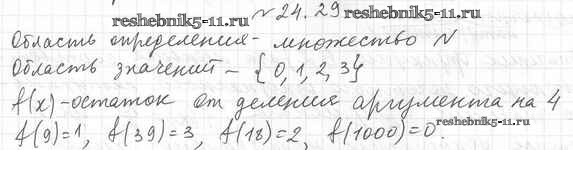 reshebnik5-11.ru
№ 24.29
reshebnik5-11.ru
Область определения - множество N
Область значений - {0, 1, 2, 3}
f(x) - остаток от деления аргумента на 4
f(9)=1, f(39)=3, f(18)=2, f(1000)=0.
reshebnik5-11.ru